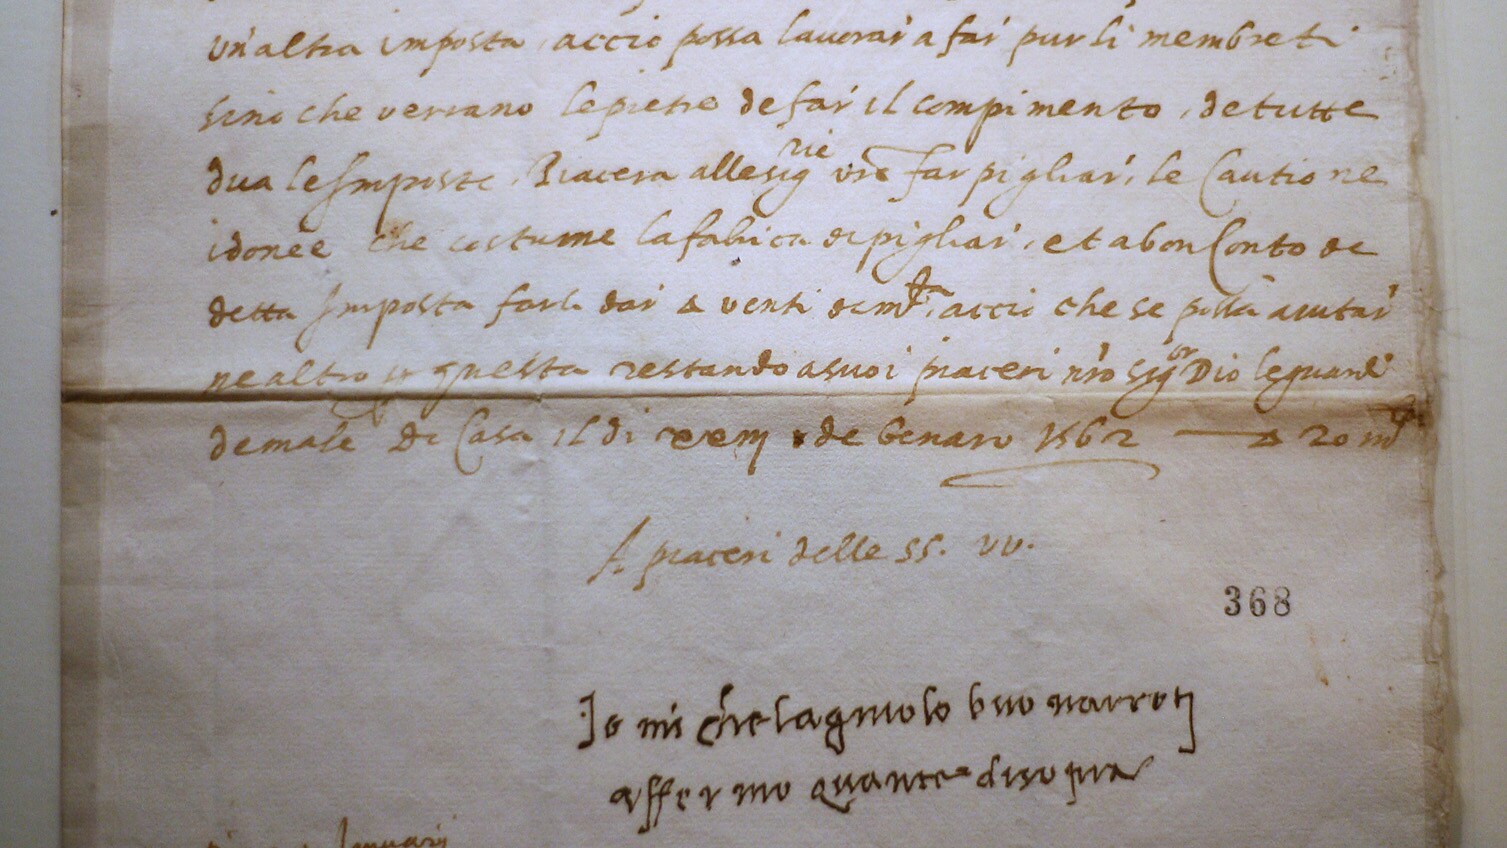 un'altra imposta, accio possa lavorar' a far' pur li membreti
sino che verrano le pietre de far' il compimento, de tutte
dua le Imposte, Piacera alle sig.rie vre far pigliar', le Cautione
idonee che costume la fabrica di pigliar', et a bon Conto de
detta Imposta farli dar' Δ venti de m.ta, accio che se possa aiutar'
ne altro questa restando a suoi piaceri n'ro sig.or Dio le guardi
de male Di Casa il di de Genaro 1562 Δ 20 m.ta
A piaceri delle SS. VV.
368
Io michelagniolo buonarroti
affermo quanto disopra
Januarii